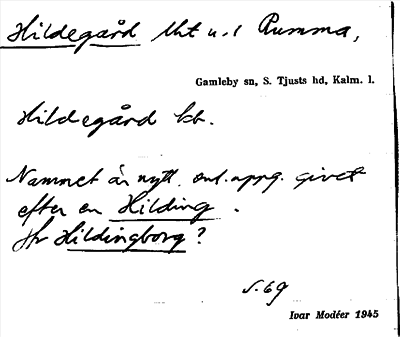 Hildegård lht u. l Rumma,
Gamleby sn, S. Tjusts hd, Kalm. l.
Hildegård kb.
Namnet är nytt, enl. uppg. givet
efter en Hilding.
Jfr Hildingborg?
S. 69
Ivar Modéer 1945